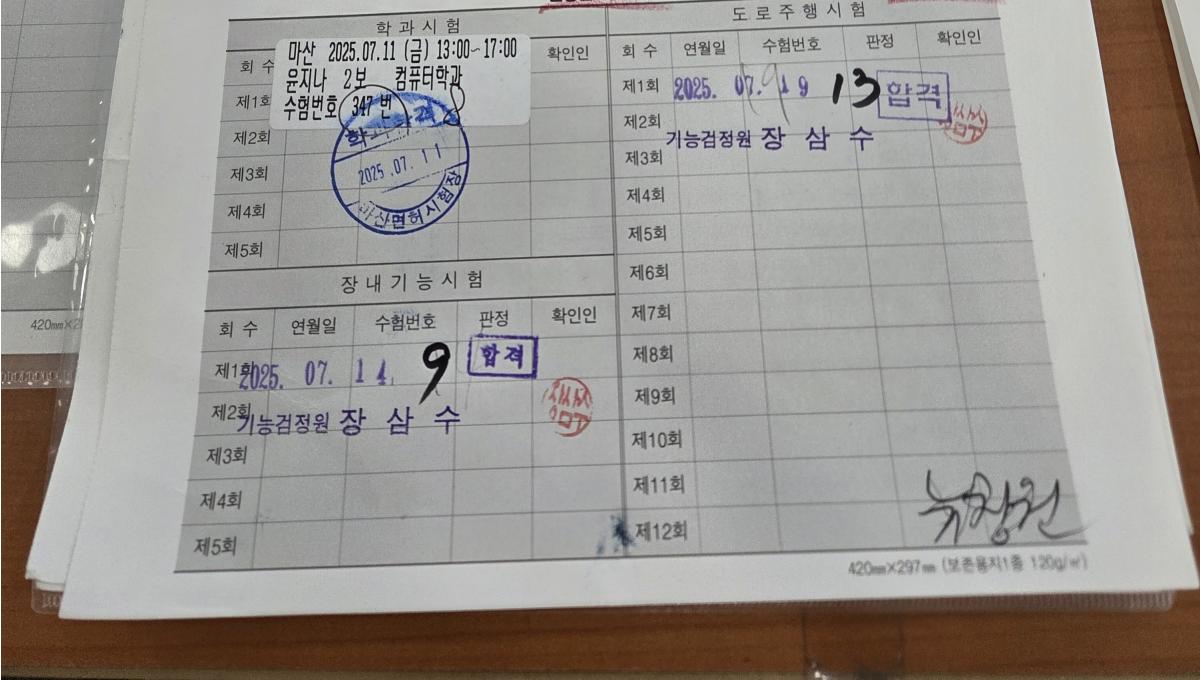 학과시험
마산 2025.07.11 (금) 13:00~17:00
윤지나 2보 컴퓨터학과
수험번호 347 번
회 수
확인인
제1회
제2회
제3회
제4회
제5회
학과 합격
2025.07.11
마산면허시험장
장내기능시험
회 수 연월일 수험번호 판정 확인인
제1회 2025. 07. 14. 9 합격
제2회 기능검정원 장삼수
제3회
제4회
제5회
도로주행시험
회 수 연월일 수험번호 판정 확인인
제1회 2025. 07. 19 13 합격
제2회
기능검정원 장삼수
제3회
제4회
제5회
제6회
제7회
제8회
제9회
제10회
제11회
제12회
뉴창원
420㎜×297㎜ (보존용지1종 120g/㎡)